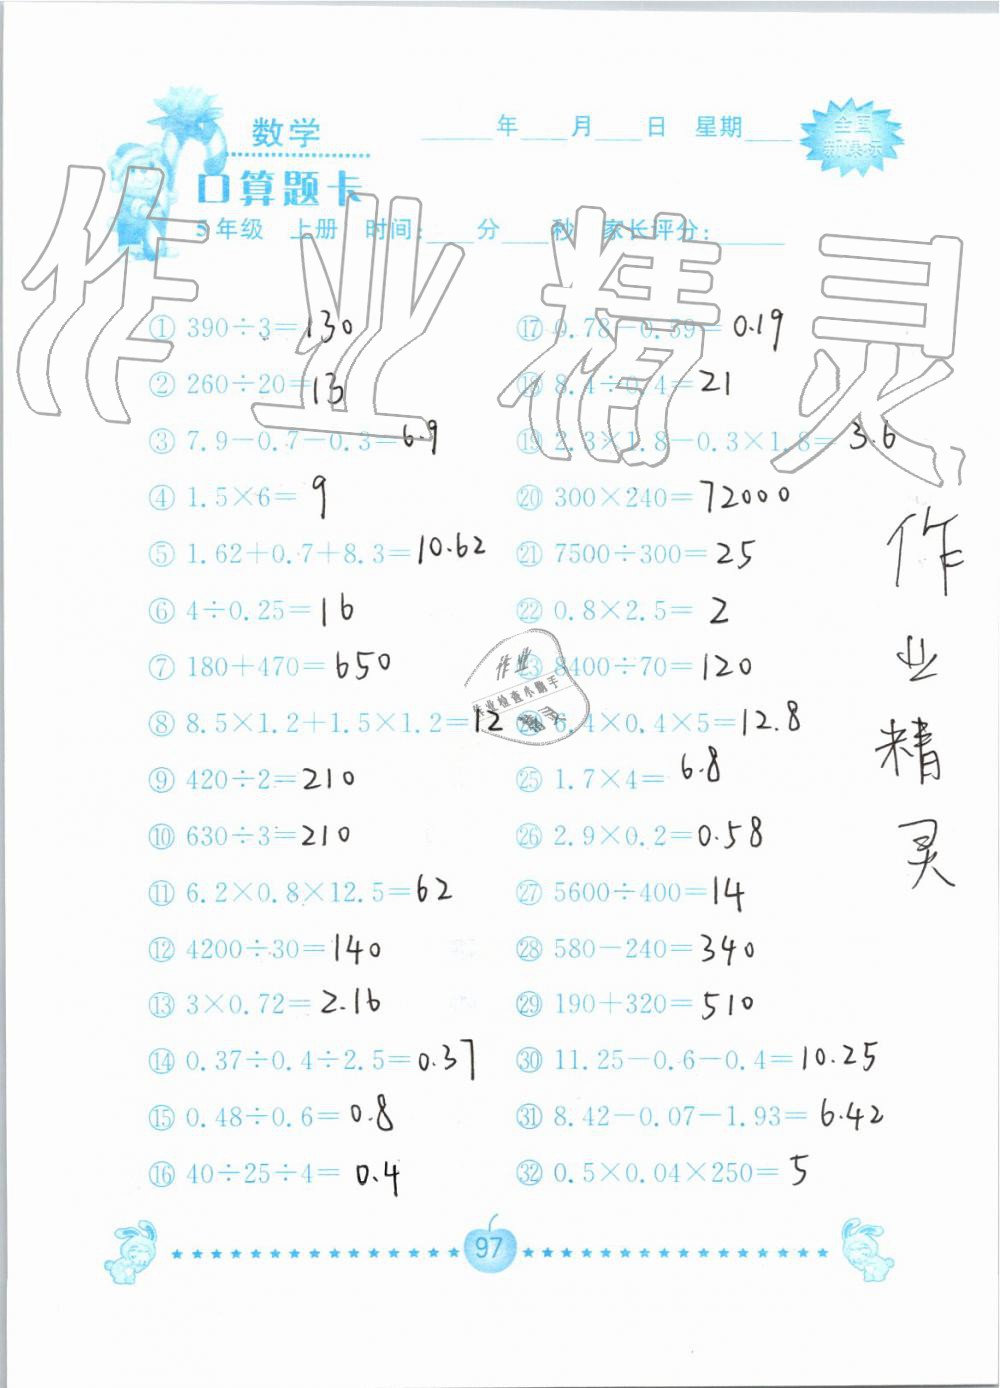 数学
____年____月____日 星期____
全国
新课标
口算题卡
5年级 上册 时间:____分____秒 家长评分:____
作业精灵
① 390÷3=130
② 260÷20=13
③ 7.9-0.7-0.3=6.9
④ 1.5×6=9
⑤ 1.62+0.7+8.3=10.62
⑥ 4÷0.25=16
⑦ 180+470=650
⑧ 8.5×1.2+1.5×1.2=12
⑨ 420÷2=210
⑩ 630÷3=210
⑪ 6.2×0.8×12.5=62
⑫ 4200÷30=140
⑬ 3×0.72=2.16
⑭ 0.37÷0.4÷2.5=0.37
⑮ 0.48÷0.6=0.8
⑯ 40÷25÷4=0.4
⑰ 0.78-0.59=0.19
⑱ 8.4÷0.4=21
⑲ 2.3×1.8-0.3×1.8=3.6
⑳ 300×240=72000
㉑ 7500÷300=25
㉒ 0.8×2.5=2
㉓ 8400÷70=120
㉔ 6.4×0.4×5=12.8
㉕ 1.7×4=6.8
㉖ 2.9×0.2=0.58
㉗ 5600÷400=14
㉘ 580-240=340
㉙ 190+320=510
㉚ 11.25-0.6-0.4=10.25
㉛ 8.42-0.07-1.93=6.42
㉜ 0.5×0.04×250=5
作业
作业检查小助手
精灵
作
业
精
灵
97